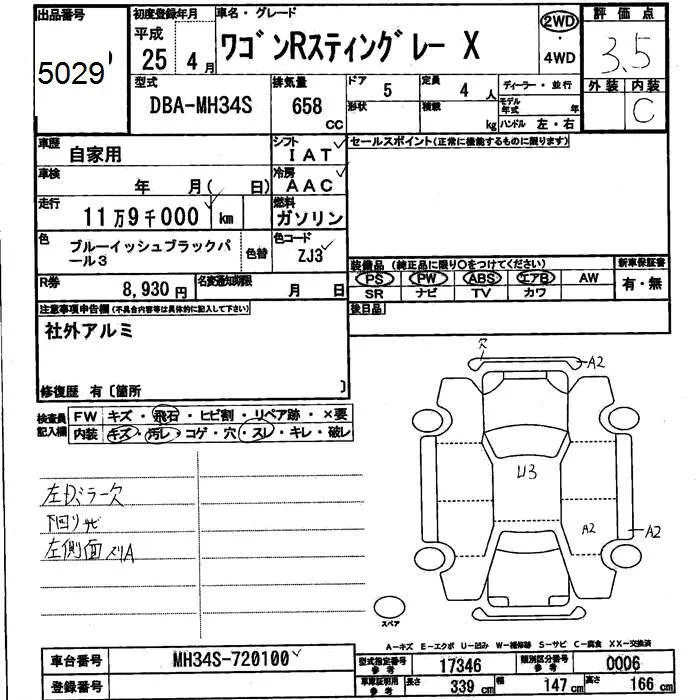 出品番号 初度登録年月 車名・グレード 2WD 評価点
5029 平成 ワゴンRスティングレー X 3.5
25年 4月 4WD
型式 排気量 ドア 定員 ディーラー・並行 外装 内装
DBA-MH34S 658 CC 5 4人 モデル年式 年 C
形状 積載 kg ハンドル 左・右
車歴 自家用 シフト IAT セールスポイント(正常に機能するものに限ります)
車検 年 月( 日) 冷房 AAC
走行 11万9千000 km 燃料 ガソリン
色 ブルーイッシュブラックパール3 色替 色コード ZJ3
装備品 (純正品に限り○をつけてください) 新車保証書
PS PW ABS エアB AW 有・無
SR ナビ TV カワ
R券 8,930円 名変通知期限 月 日
後日品
注意事項申告欄(不具合内容等は具体的に記入して下さい)
社外アルミ
修復歴 有〔箇所 〕
検査員記入欄 FW キズ・飛石・ヒビ割・リペア跡・×要
内装 キズ・汚レ・コゲ・穴・スレ・キレ・破レ
欠 A2
U3
A2 A2
左Dミラー欠
下回りサビ
左側面 A
スペア
A-キズ E-エクボ U-凹み W-補修跡 S-サビ C-腐食 XX-交換済
車台番号 MH34S-720100 型式指定番号 参考 17346 類別区分番号 参考 0006
登録番号 車庫証明用 参考 長さ 339cm 幅 147cm 高さ 166cm